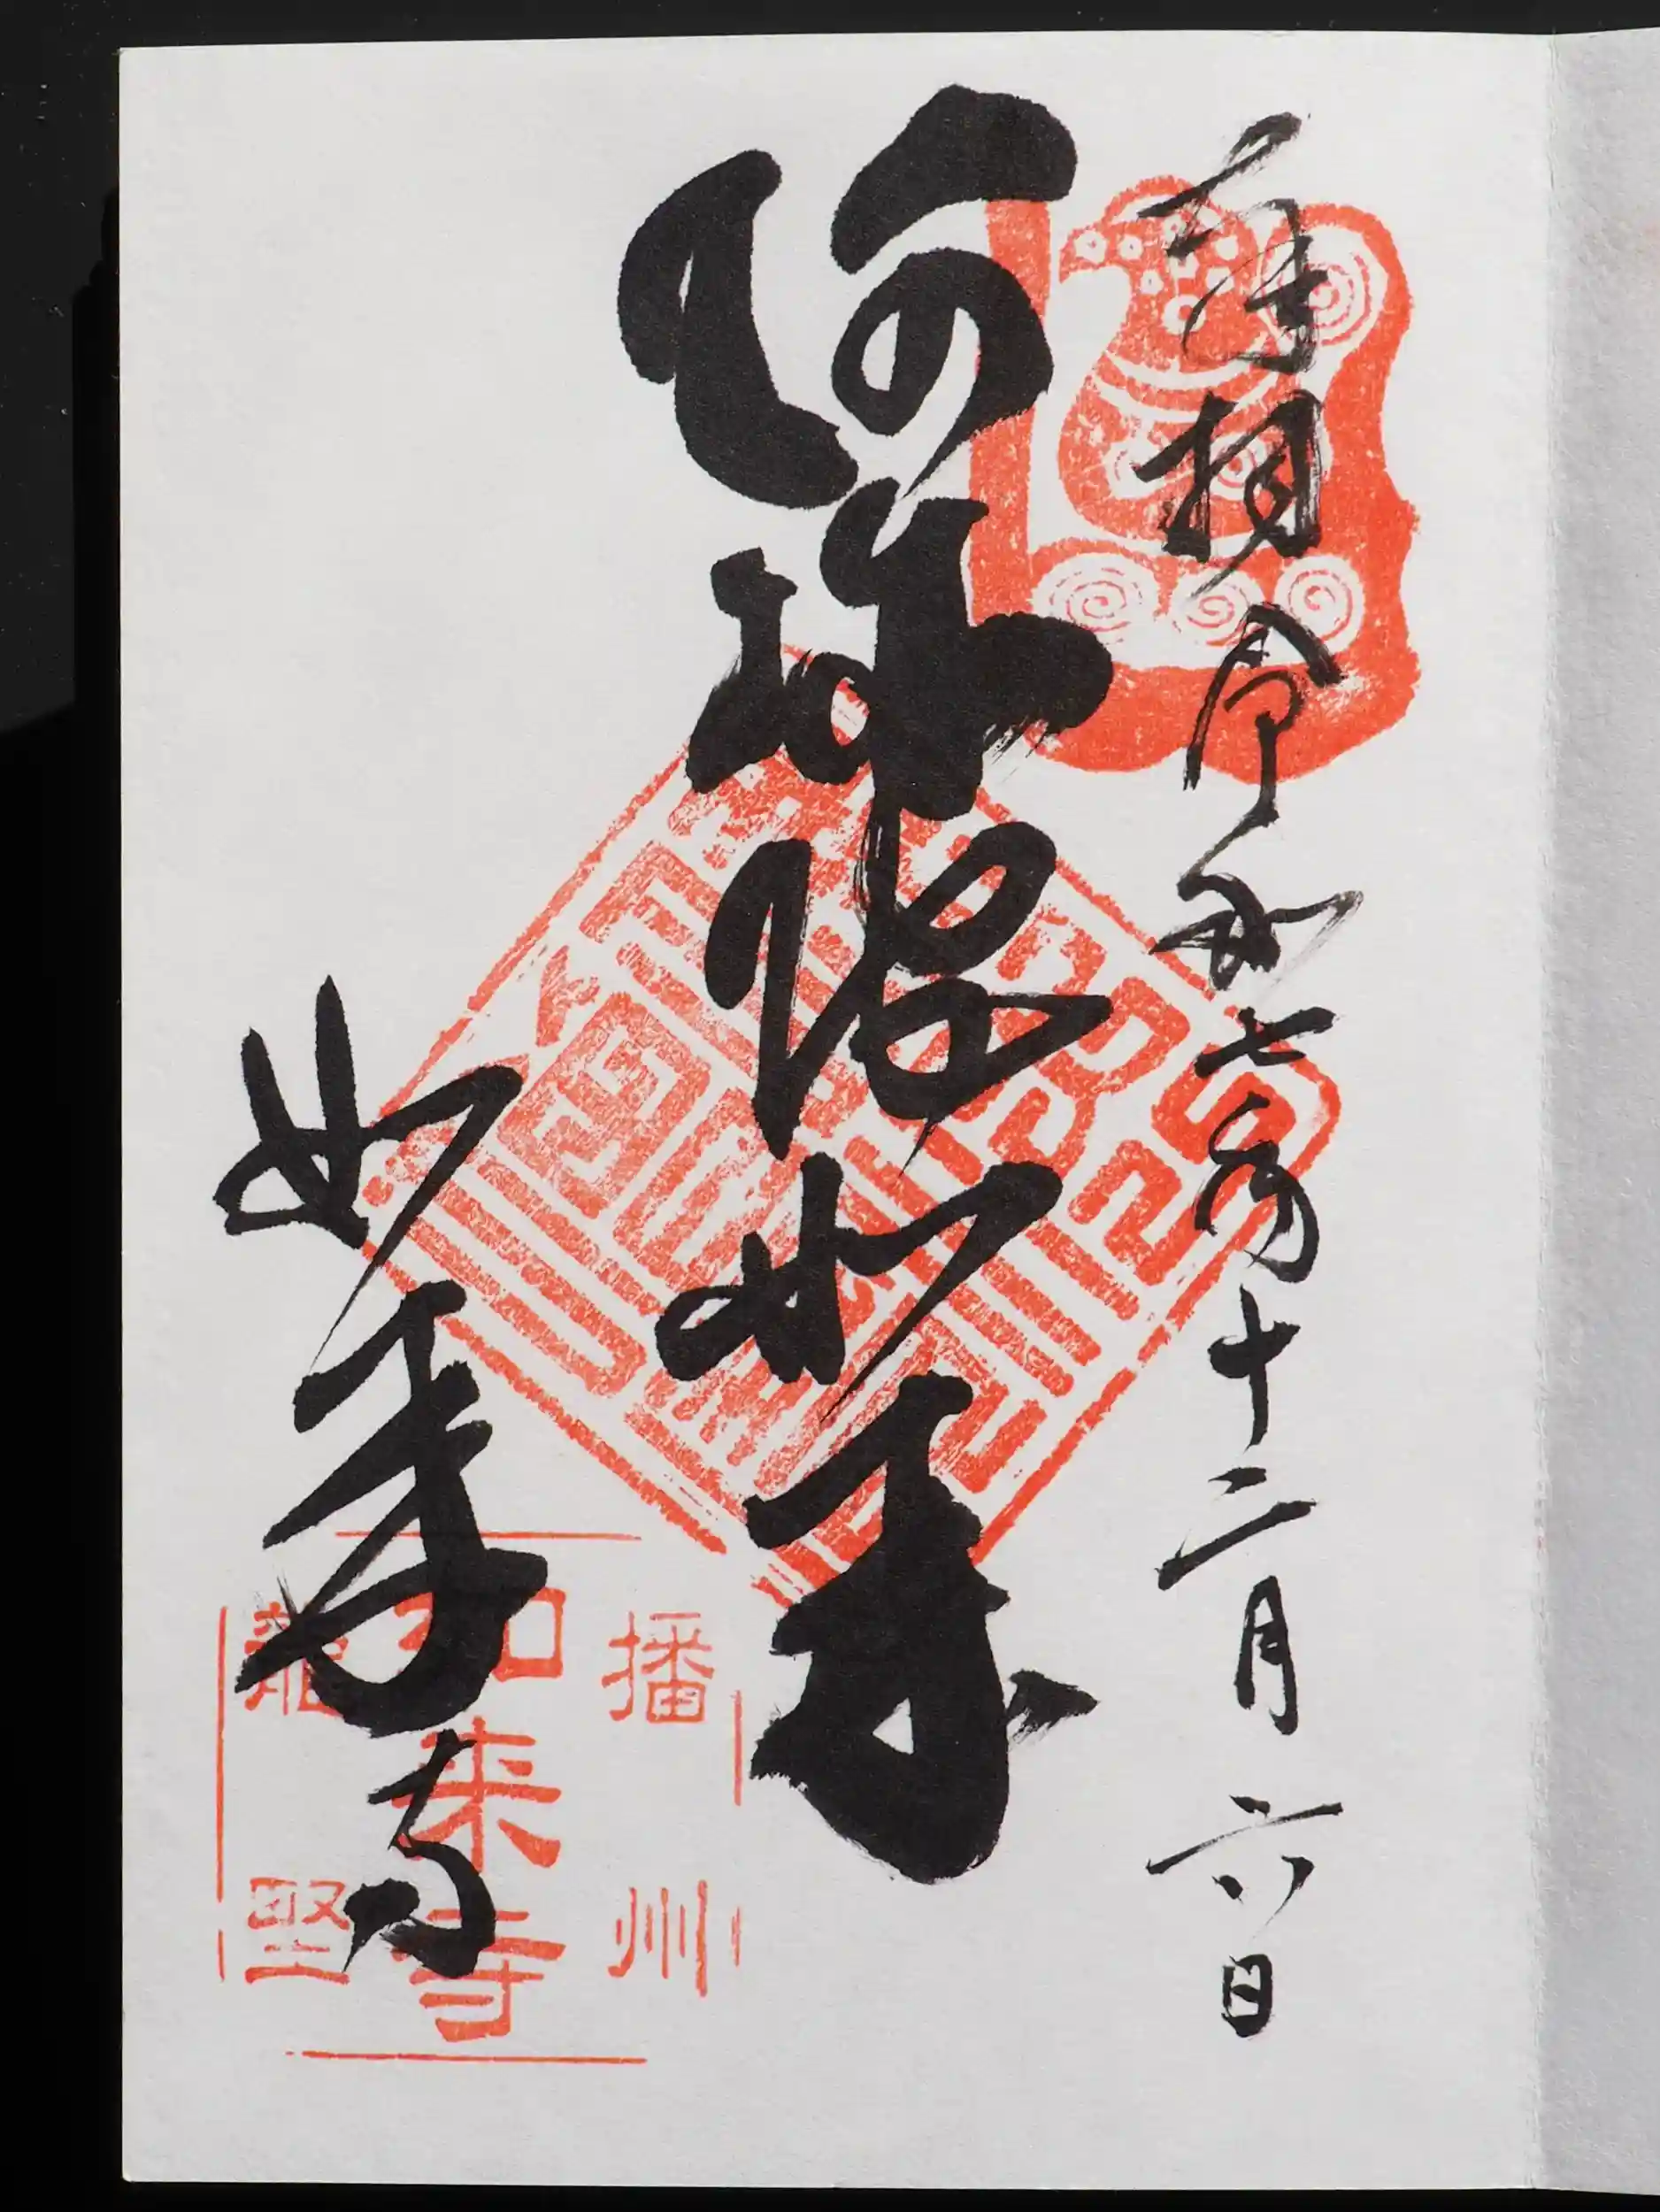 奉拝 令和七年十二月六日
阿弥陀如来
如来寺
播州
如来寺
龍野